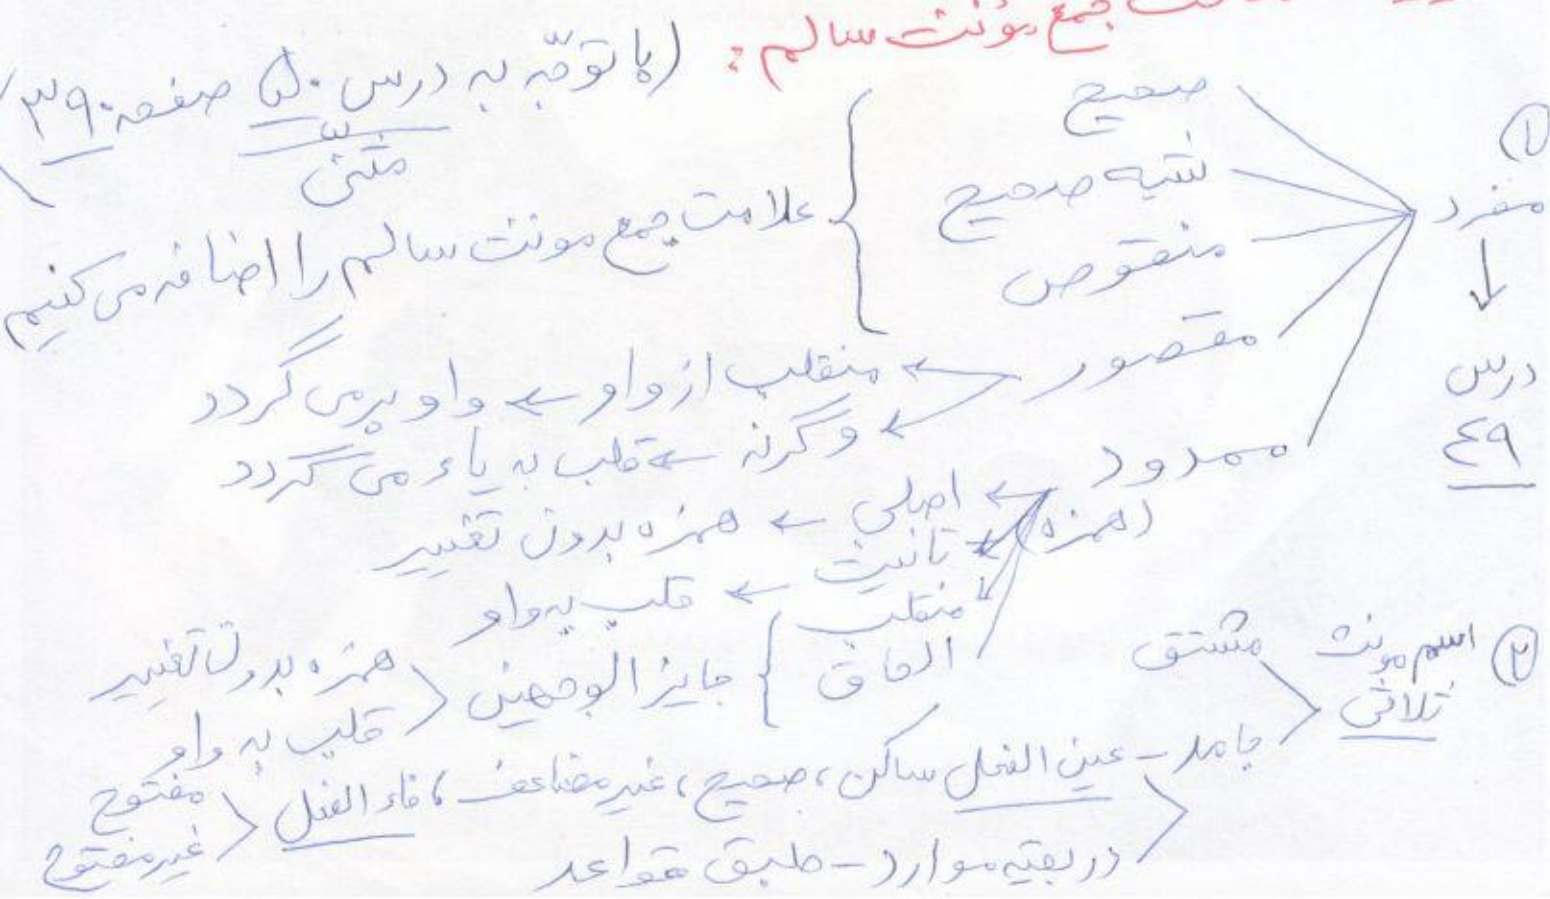 جمع مؤنث سالم :
(با توجّه به درس ۵۰ صفحه ۳۹۰)
مثنی
① مفرد
↓
درس
۴۹
صحیح
شبه صحیح
منقوص
علامت جمع مونث سالم را اضافه می کنیم
مقصور ← منقلب از واو ← واو برمی گردد
← وگرنه ← قلب به یاء می گردد
ممدود ← اصلی ← همزه بدون تغییر
(همزه) ← تانیث ← قلب به واو
منقلب
الحاق
جایز الوجهین
همزه بدون تغییر
قلب به واو
② اسم مونث ثلاثی
مشتق
جامد - عین الفعل ساکن، صحیح، غیر مضاعف، فاء الفعل
مفتوح
غیر مفتوح
در بقیه موارد - طبق قواعد